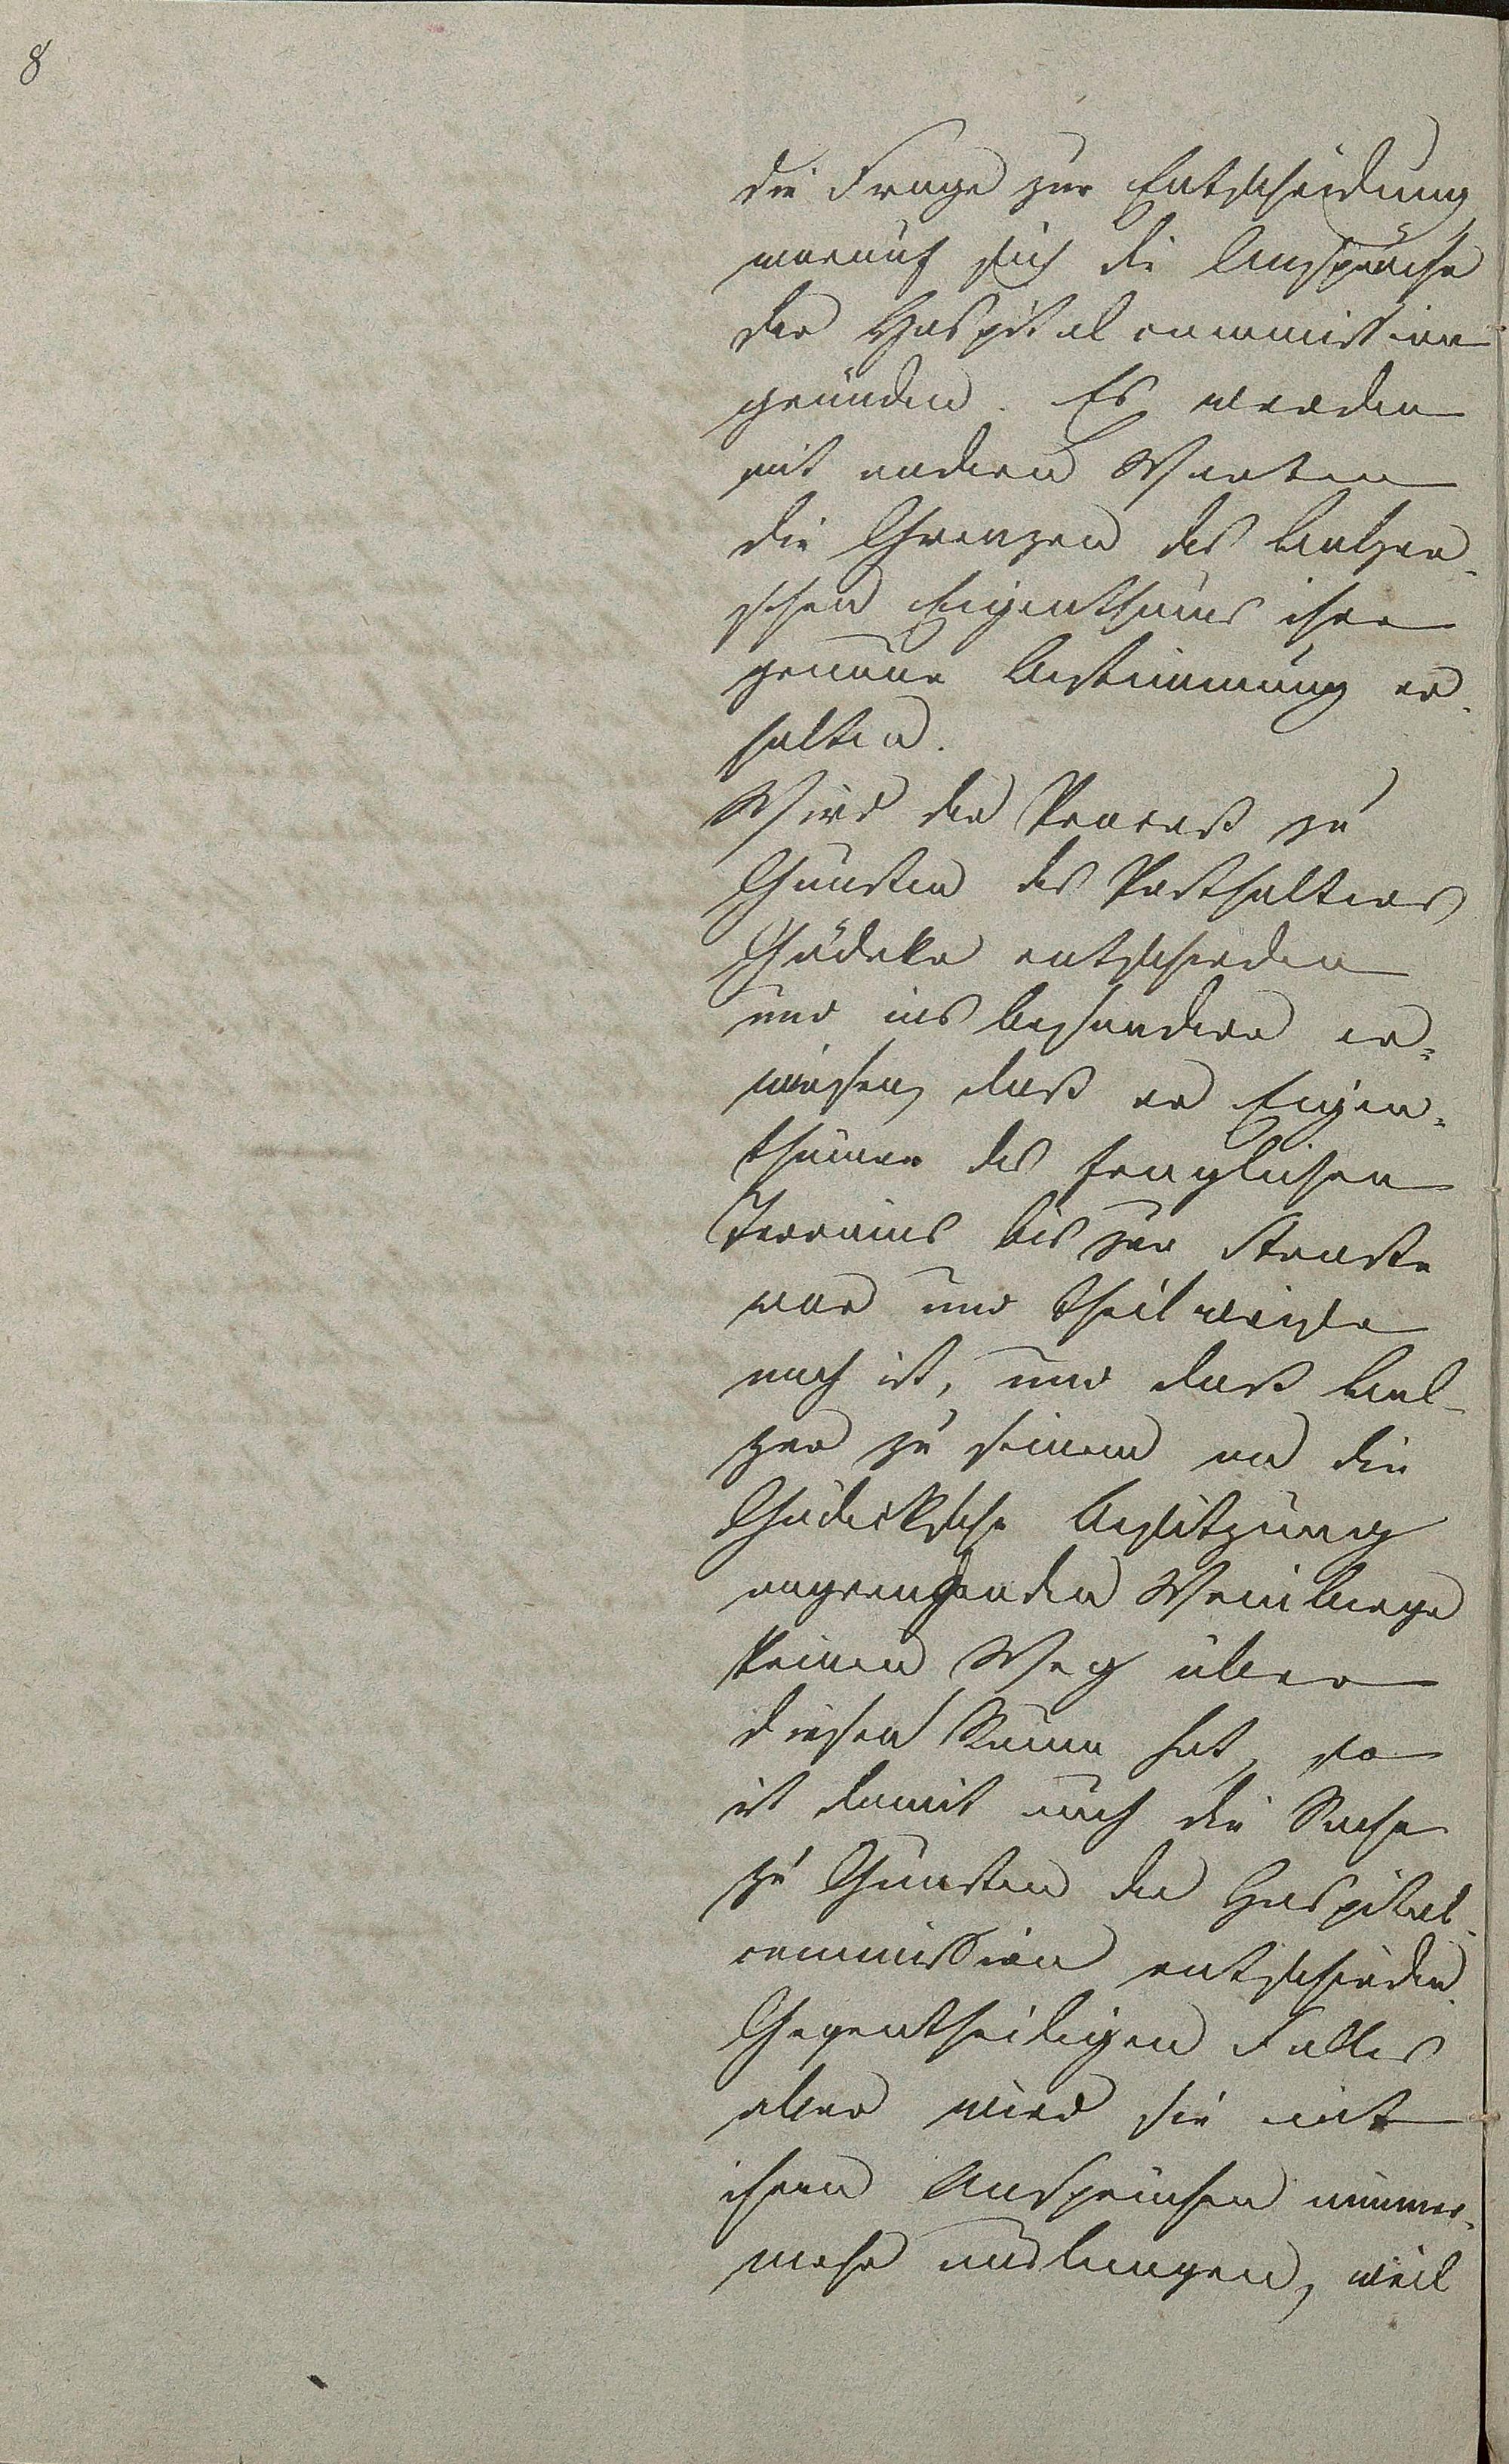 8
die Frage zur Entscheidung,
worauf sich die Ansprüche
der Hospitalcommission
gründen. Es werden
mit andern Worten
die Grenzen des Balzer-
schen Eigenthums ihre
genaue Bestimmung er-
halten.
Wird der Proceß zu
Gunsten des Posthalters
Gödeke entschieden
und ins besondere er-
wiesen, daß er Eigen-
thümer des fraglichen
Terrains bis zur Straße
war und theilweise
noch ist, und daß Bal-
zer zu seinem an die
Gödekesche Besitzung
angrenzenden Weinberge
keinen Weg über
diesen Raum hat, so
ist damit auch die Sache
zu Gunsten der Hospital-
commission entschieden.
Gegentheiligen Falles
aber wird sie mit
ihren Ansprüchen nimmer-
mehr auslangen, weil